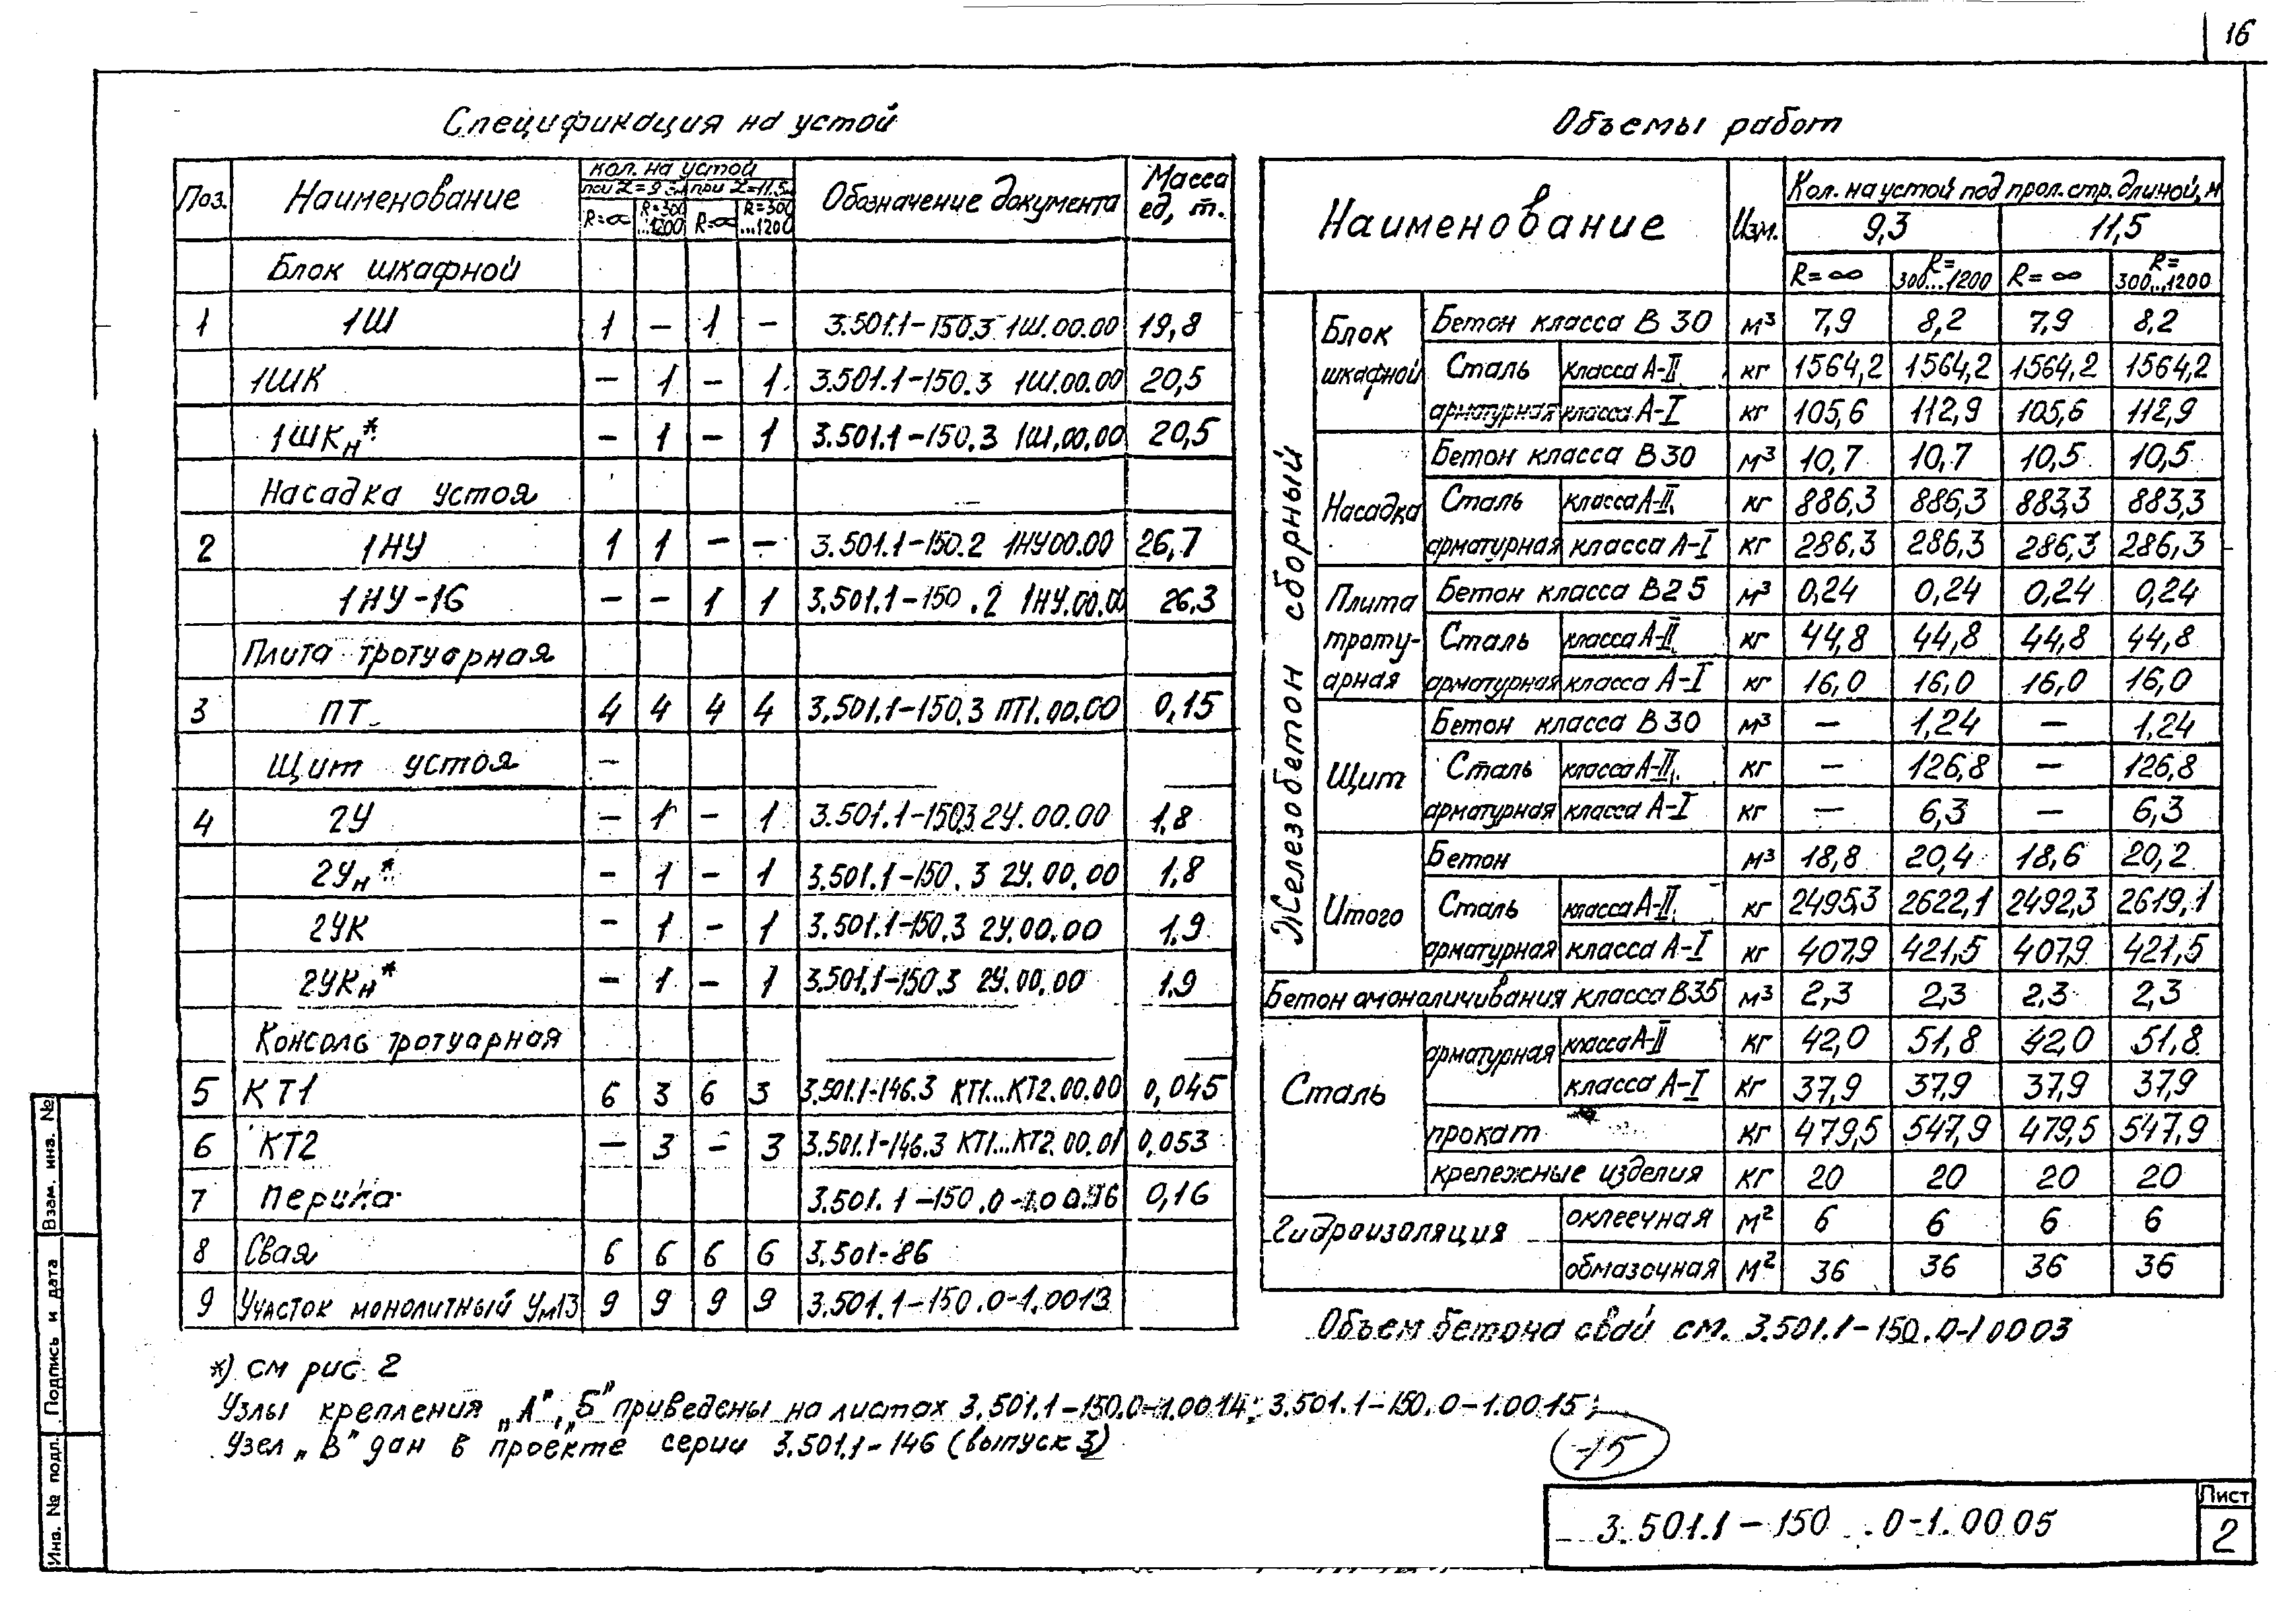 16
Спецификация на устой
Поз. Наименование кол. на устой Обозначение документа Масса ед, т.
при L=9,3м при L=11,5м
R=∞ R=300...1200 R=∞ R=300...1200
Блок шкафной
1 1Ш 1 – 1 – 3.501.1-150.3 1Ш.00.00 19,8
1ШК – 1 – 1 3.501.1-150.3 1Ш.00.00 20,5
1ШКн* – 1 – 1 3.501.1-150.3 1Ш.00.00 20,5
Насадка устоя
2 1НУ 1 1 – – 3.501.1-150.2 1НУ00.00 26,7
1НУ-16 – – 1 1 3.501.1-150.2 1НУ.00.00 26,3
Плита тротуарная
3 ПТ 4 4 4 4 3.501.1-150.3 ПТ1.00.00 0,15
Щит устоя –
4 2У – 1 – 1 3.501.1-150.3 2У.00.00 1,8
2Ун* – 1 – 1 3.501.1-150.3 2У.00.00 1,8
2УК – 1 – 1 3.501.1-150.3 2У.00.00 1,9
2УКн* – 1 – 1 3.501.1-150.3 2У.00.00 1,9
Консоль тротуарная
5 КТ1 6 3 6 3 3.501.1-146.3 КТ1...КТ2.00.00 0,045
6 КТ2 – 3 – 3 3.501.1-146.3 КТ1...КТ2.00.01 0,053
7 Перила 3.501.1-150.0-1.0016 0,16
8 Свая 6 6 6 6 3.501-86
9 Участок монолитный Ум13 9 9 9 9 3.501.1-150.0-1.0013
*) см рис 2
Узлы крепления „А", „Б" приведены на листах 3.501.1-150.0-1.0014; 3.501.1-150.0-1.0015;
Узел „В" дан в проекте серии 3.501.1-146 (выпуск 3)
Объемы работ
Наименование Изм. Кол. на устой под прол.стр.длиной, м
9,3 11,5
R=∞ R=300...1200 R=∞ R=300...1200
Железобетон сборный
Блок шкафной Бетон класса В30 м³ 7,9 8,2 7,9 8,2
Сталь арматурная класса А-II кг 1564,2 1564,2 1564,2 1564,2
класса А-I кг 105,6 112,9 105,6 112,9
Насадка Бетон класса В30 м³ 10,7 10,7 10,5 10,5
Сталь арматурная класса А-II кг 886,3 886,3 883,3 883,3
класса А-I кг 286,3 286,3 286,3 286,3
Плита тротуарная Бетон класса В25 м³ 0,24 0,24 0,24 0,24
Сталь арматурная класса А-II кг 44,8 44,8 44,8 44,8
класса А-I кг 16,0 16,0 16,0 16,0
Щит Бетон класса В30 м³ – 1,24 – 1,24
Сталь арматурная класса А-II кг – 126,8 – 126,8
класса А-I кг – 6,3 – 6,3
Итого Бетон м³ 18,8 20,4 18,6 20,2
Сталь арматурная класса А-II кг 2495,3 2622,1 2492,3 2619,1
класса А-I кг 407,9 421,5 407,9 421,5
Бетон омоноличивания класса В35 м³ 2,3 2,3 2,3 2,3
Сталь арматурная класса А-II кг 42,0 51,8 42,0 51,8
класса А-I кг 37,9 37,9 37,9 37,9
прокат кг 479,5 547,9 479,5 547,9
крепежные изделия кг 20 20 20 20
Гидроизоляция оклеечная м² 6 6 6 6
обмазочная м² 36 36 36 36
Объем бетона свай см. 3.501.1-150.0-1.0003
15
3.501.1-150.0-1.0005
Лист
2
Взам. инв. №
Подпись и дата
Инв. № подл.